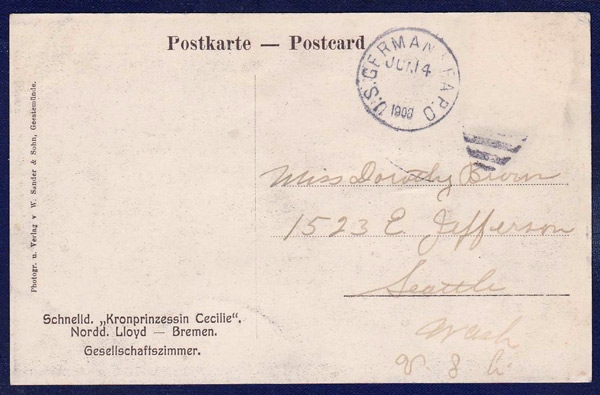 Postkarte — Postcard
U.S. GERMAN SEA P.O.
JUL 14
1908
Miss Dorothy Brown
1523 E Jefferson
Seattle
Wash
Photogr. u. Verlag v W. Sander & Sohn, Geestemünde.
Schnelld. „Kronprinzessin Cecilie“,
Nordd. Lloyd — Bremen.
Gesellschaftszimmer.